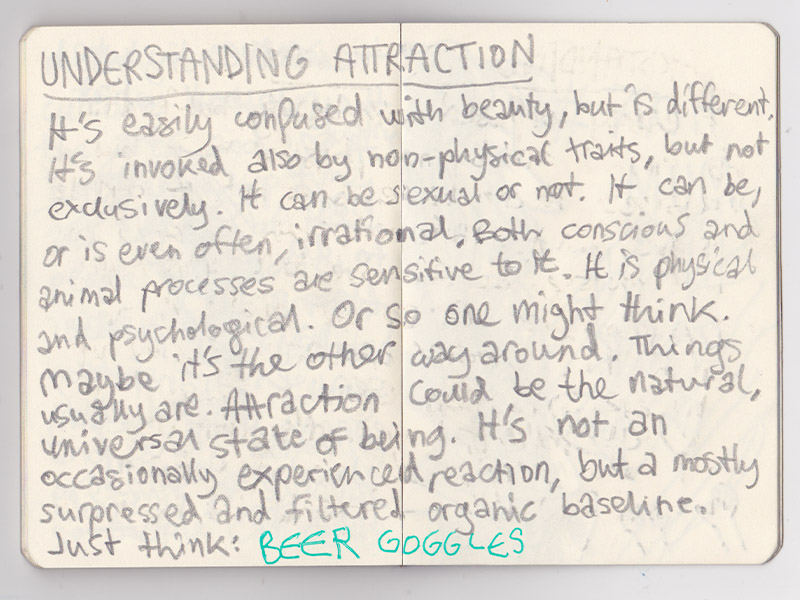 UNDERSTANDING ATTRACTION
It's easily confused with beauty, but is different.
It's invoked also by non-physical traits, but not
exclusively. It can be sexual or not. It can be,
or is even often, irrational. Both conscious and
animal processes are sensitive to it. It is physical
and psychological. Or so one might think.
maybe it's the other way around. Things
usually are. Attraction could be the natural,
universal state of being. It's not an
occasionally experienced reaction, but a mostly
surpressed and filtered organic baseline.
Just think: BEER GOGGLES